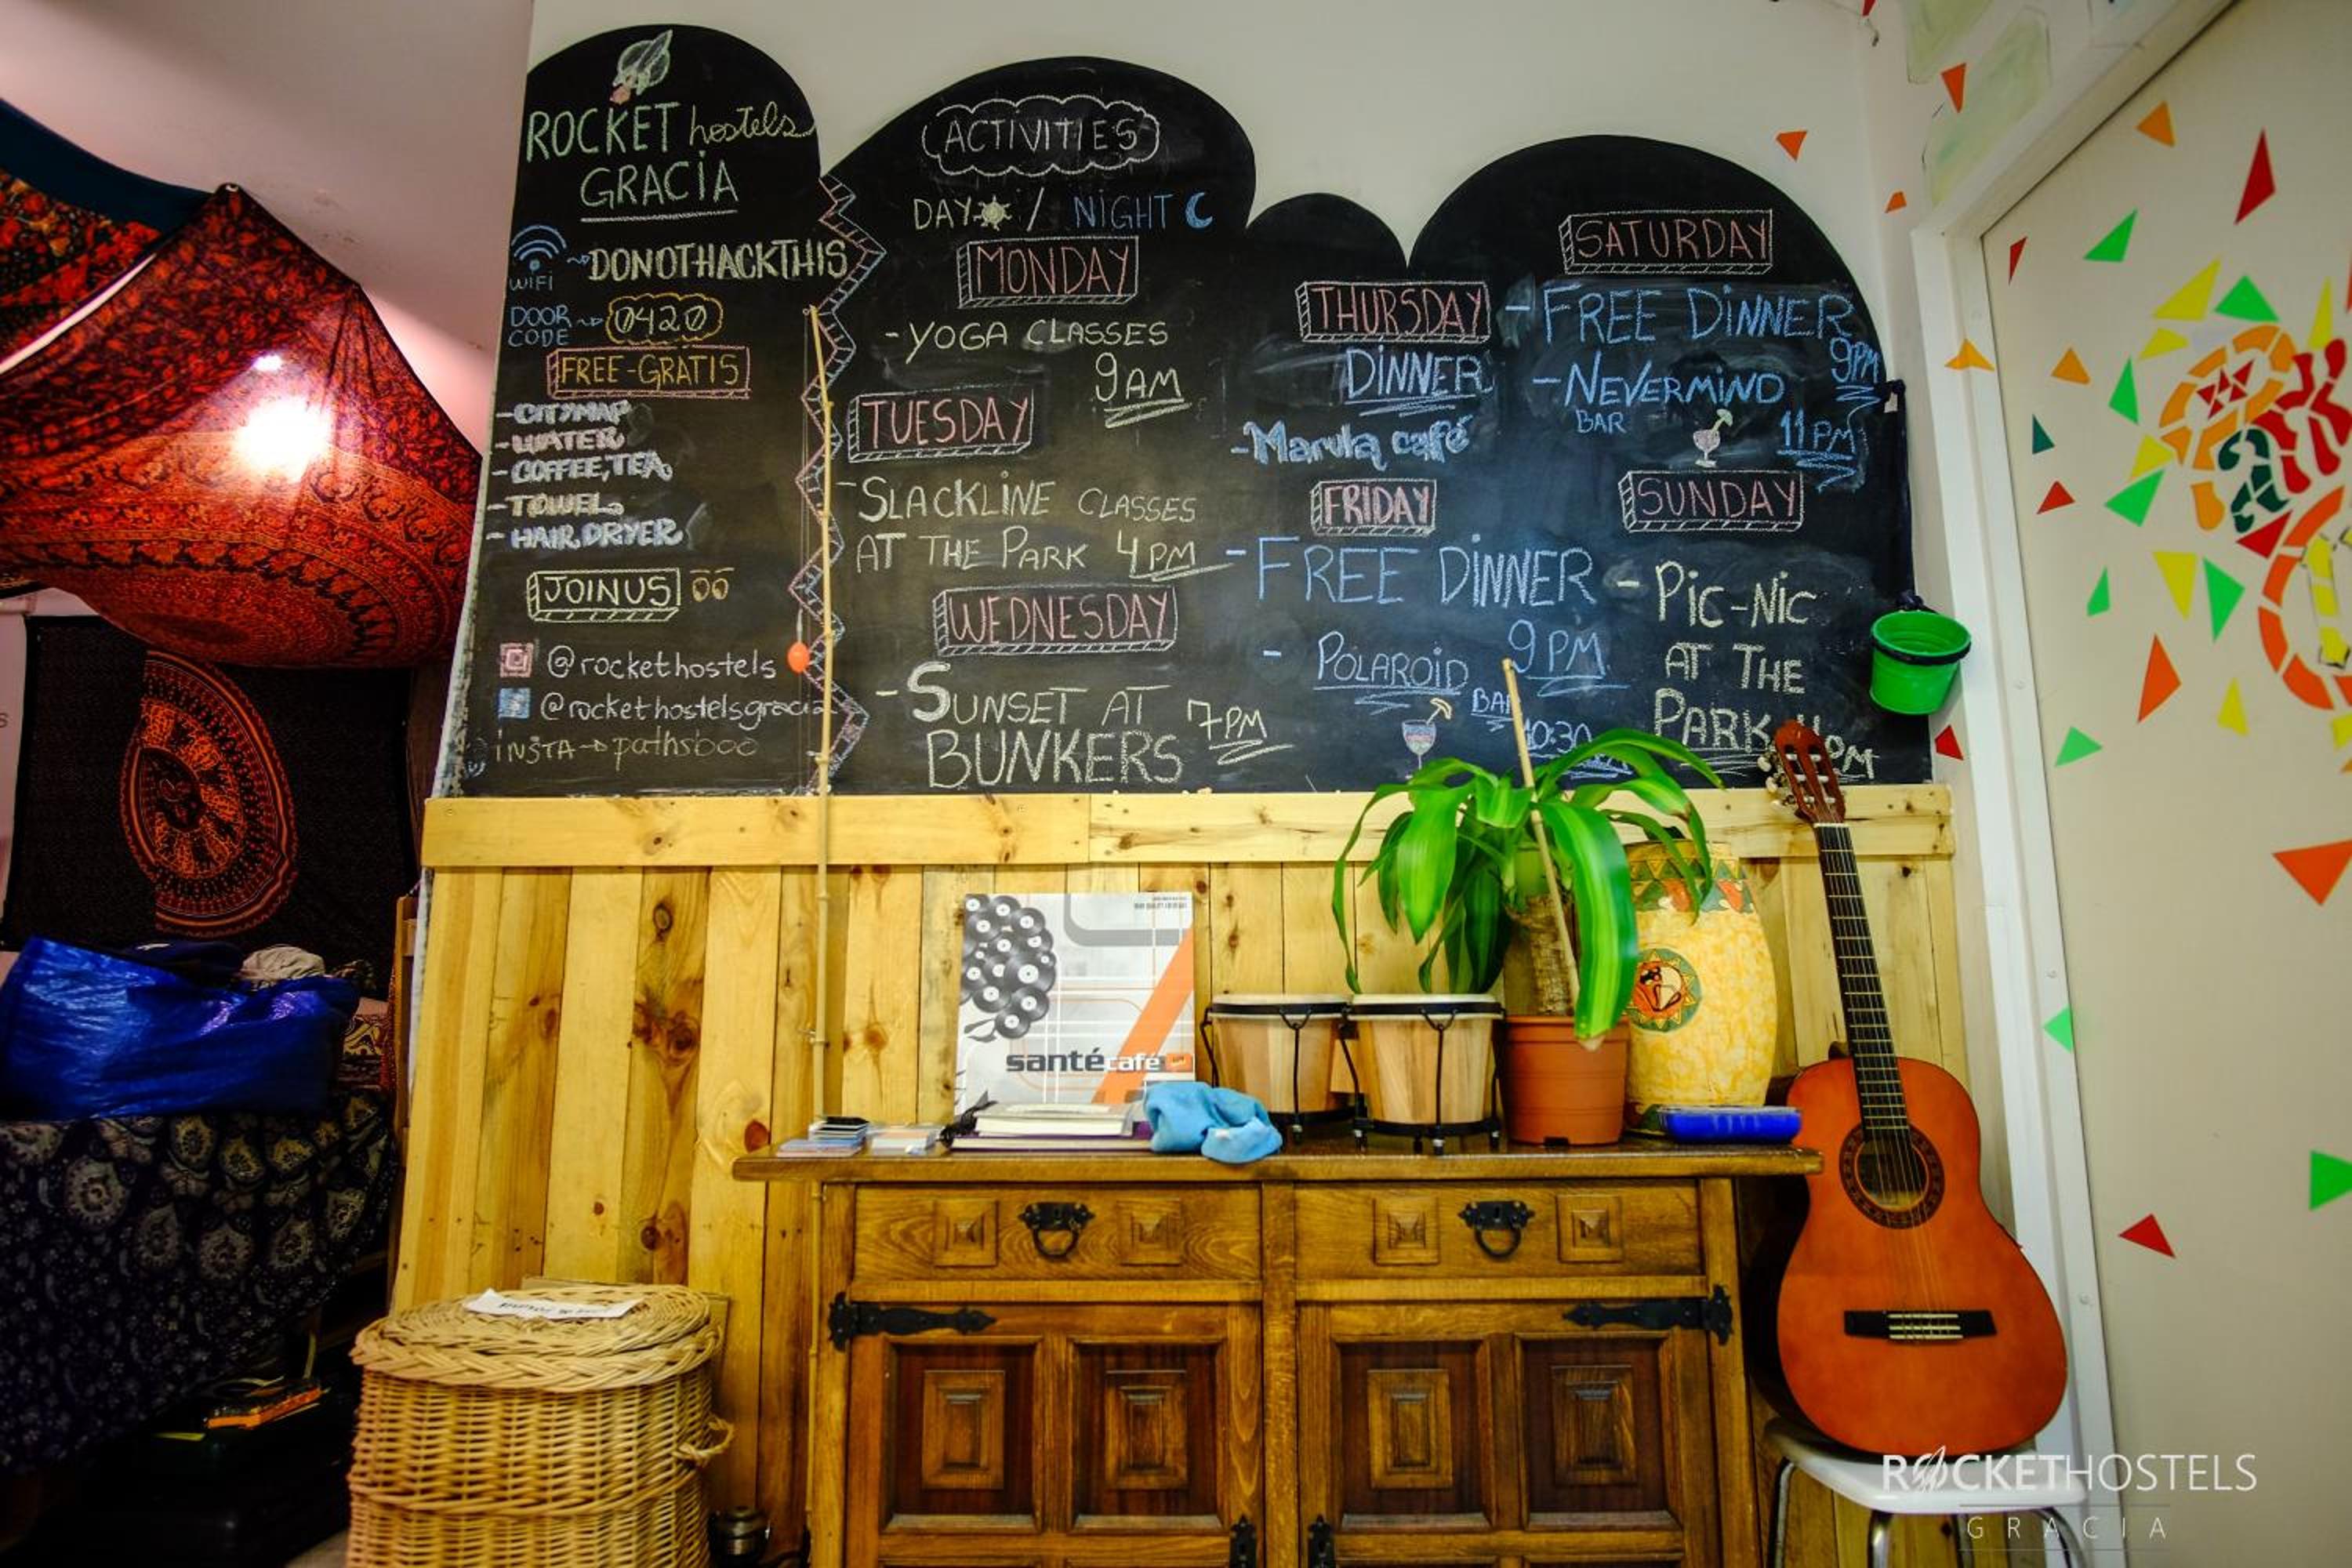 ROCKET hostels
GRACIA
WIFI DONOTHACKTHIS
DOOR CODE 0420
FREE-GRATIS
-CITYMAP
-WATER
-COFFEE, TEA
-TOWEL
-HAIR DRYER
JOIN US
@rockethostels
@rockethostelsgracia
INSTA pathsboo
ACTIVITIES
DAY / NIGHT
MONDAY
-YOGA CLASSES
9AM
TUESDAY
-SLACKLINE CLASSES
AT THE PARK 4PM
WEDNESDAY
-SUNSET AT
BUNKERS 7PM
THURSDAY
DINNER
-Marula café
FRIDAY
-FREE DINNER
9PM
-POLAROID
BAR
10:30
SATURDAY
-FREE DINNER
9PM
-NEVERMIND
BAR
11PM
SUNDAY
-PIC-NIC
AT THE
PARK
PM
santé café
ROCKETHOSTELS
GRACIA